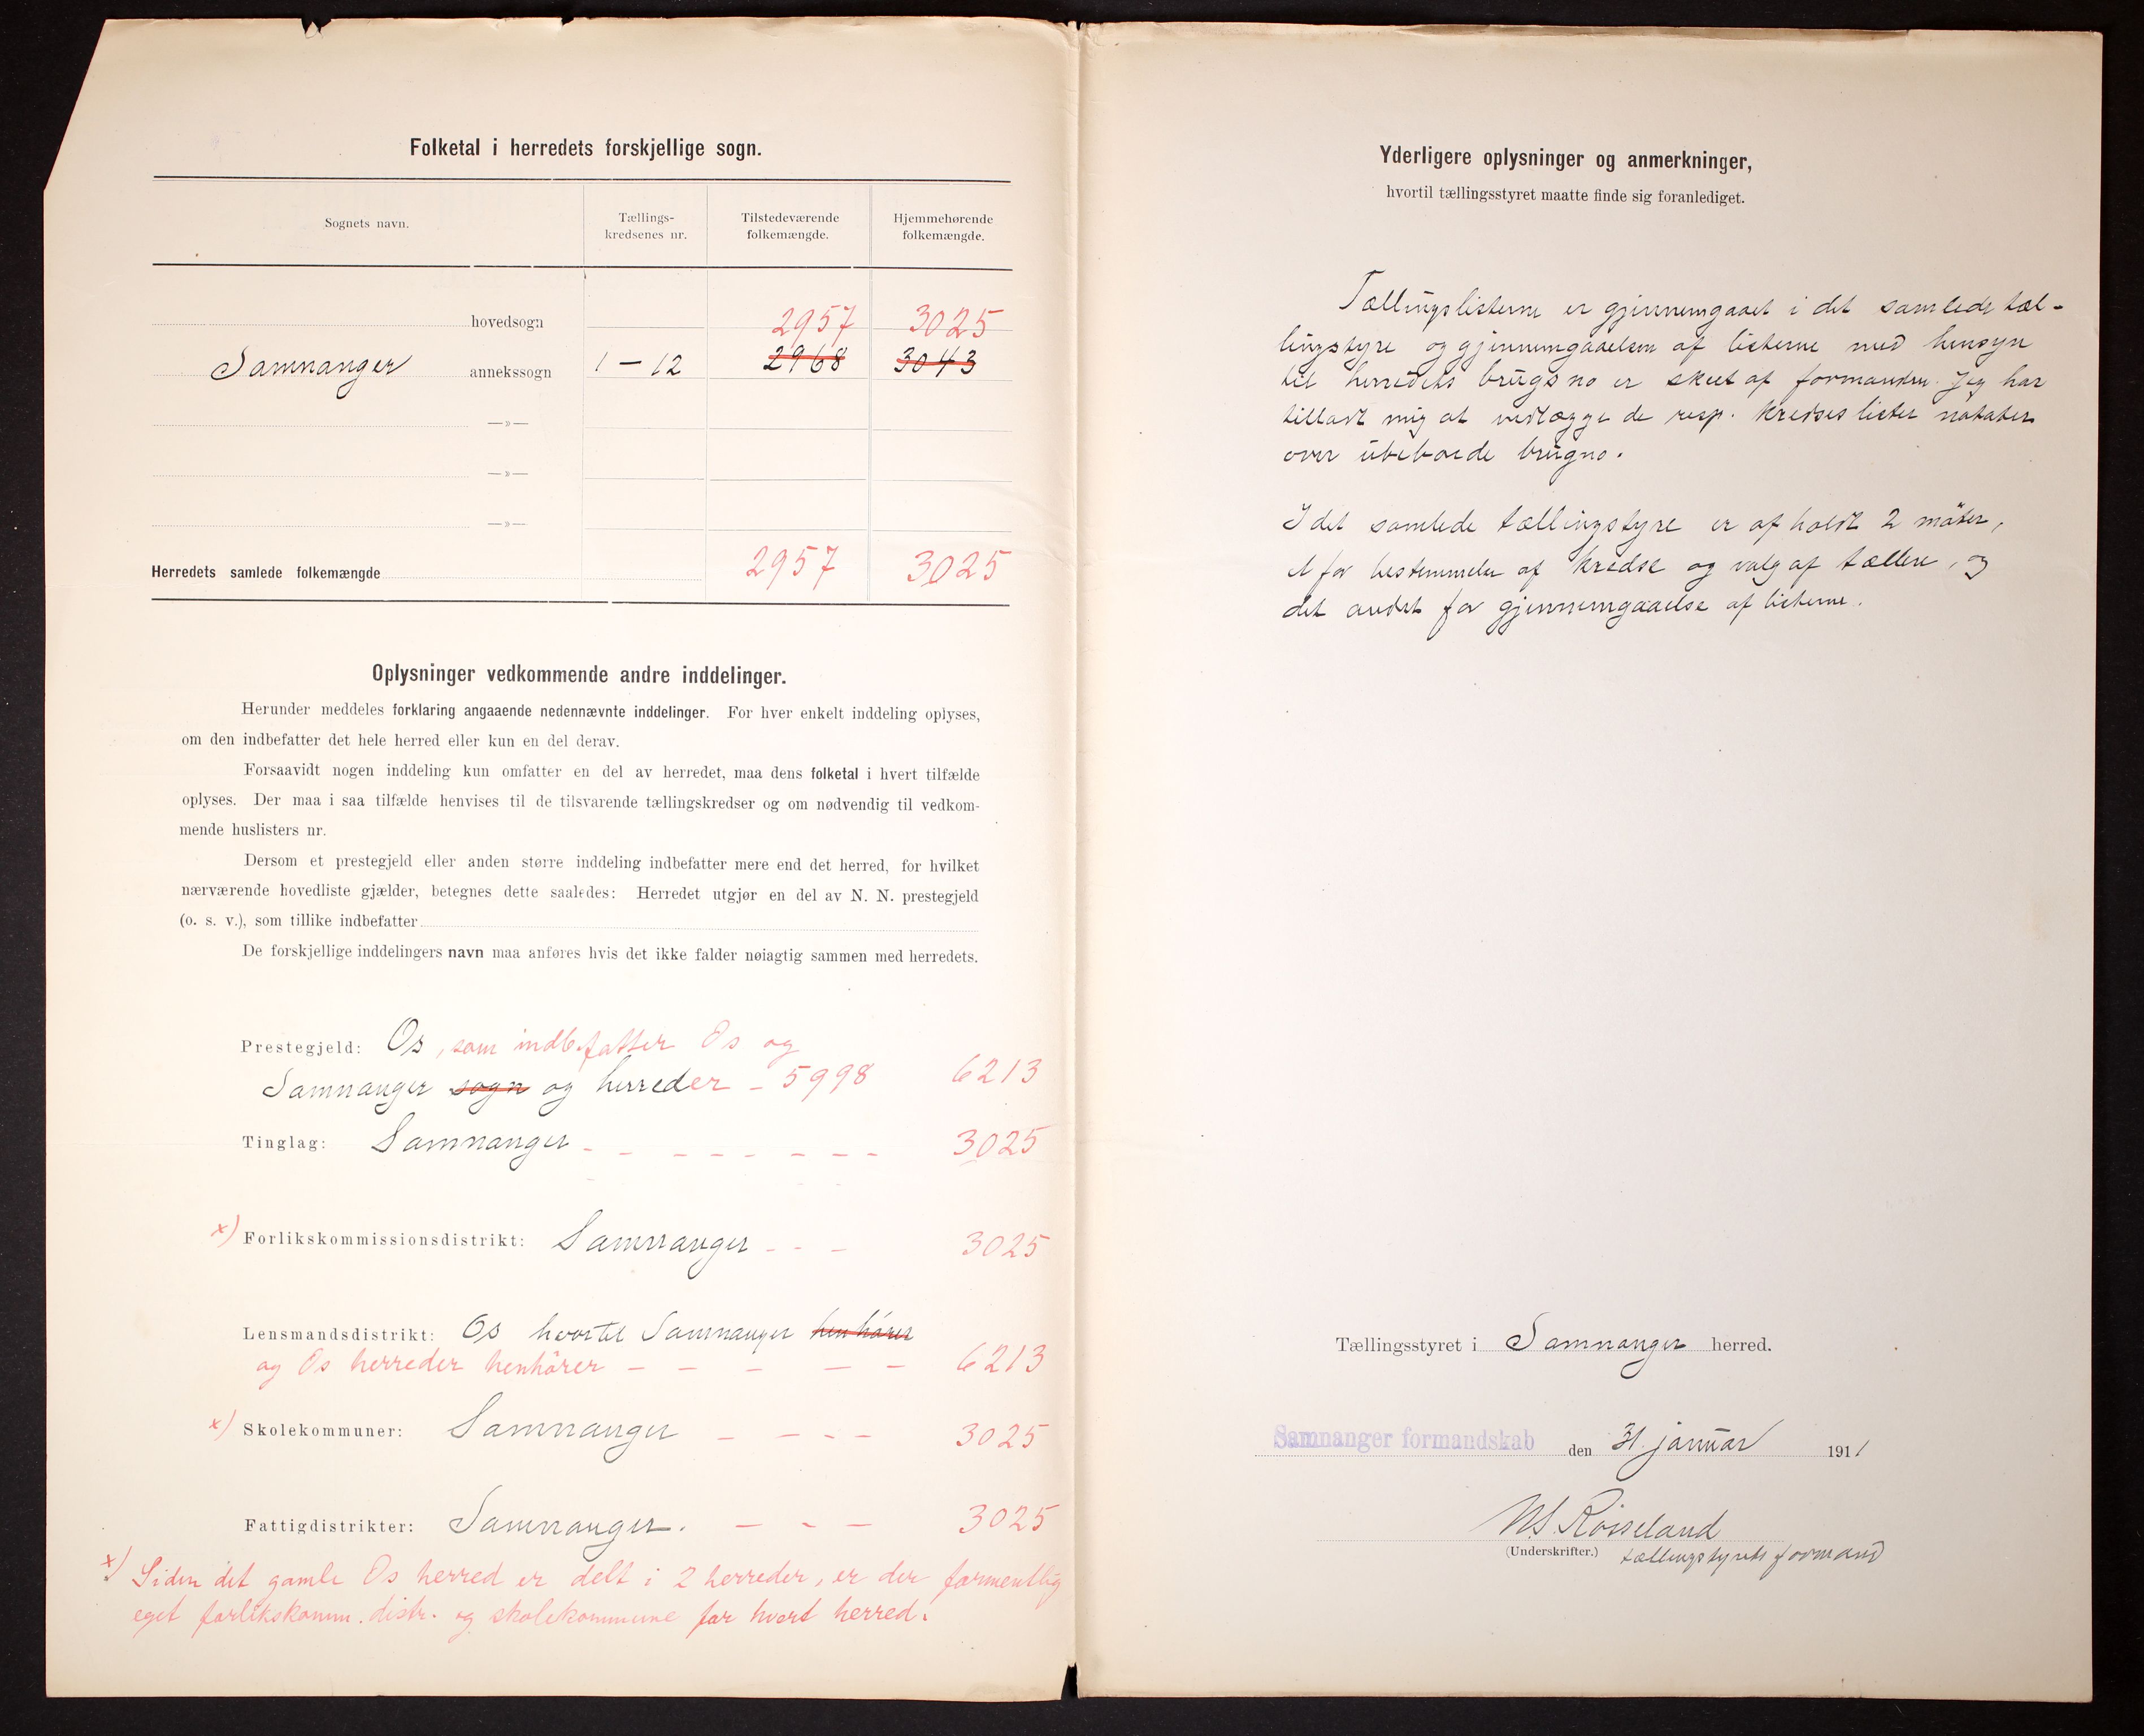 Folketal i herredets forskjellige sogn.
Sognets navn.
Tællings-
kredsenes nr.
Tilstedeværende
folkemængde.
Hjemmehørende
folkemængde.
hovedsogn 2957 3025
Samnanger annekssogn 1 – 12 2968 3043
—»—
—»—
—»—
Herredets samlede folkemængde 2957 3025
Oplysninger vedkommende andre inddelinger.
Herunder meddeles forklaring angaaende nedennævnte inddelinger. For hver enkelt inddeling oplyses,
om den indbefatter det hele herred eller kun en del derav.
Forsaavidt nogen inddeling kun omfatter en del av herredet, maa dens folketal i hvert tilfælde
oplyses. Der maa i saa tilfælde henvises til de tilsvarende tællingskredser og om nødvendig til vedkom-
mende huslisters nr.
Dersom et prestegjeld eller anden større inddeling indbefatter mere end det herred, for hvilket
nærværende hovedliste gjælder, betegnes dette saaledes: Herredet utgjør en del av N. N. prestegjeld
(o. s. v.), som tillike indbefatter
De forskjellige inddelingers navn maa anføres hvis det ikke falder nøiagtig sammen med herredets.
Prestegjeld: Os, som indbefatter Os og
Samnanger sogn og herreder – 5998 6213
Tinglag: Samnanger – – – – – – – 3025
x) Forlikskommissionsdistrikt: Samnanger – – – 3025
Lensmandsdistrikt: Os hvortil Samnanger henhörer
og Os herreder henhörer – – – – – 6213
x) Skolekommuner: Samnanger – – – – 3025
Fattigdistrikter: Samnanger. – – – 3025
x) Siden det gamle Os herred er delt i 2 herreder, er der formentlig
eget forlikskomm. distr. og skolekommune for hvert herred.
Yderligere oplysninger og anmerkninger,
hvortil tællingsstyret maatte finde sig foranlediget.
Tællingslisterne er gjennemgaaet i det samlede tæl-
lingstyre og gjennemgaaelsen af listerne med hensyn
til herredets brugsno er skeet af formanden. Jeg har
tilladt mig at vedlægge de resp. kredses lister notater
over ubeboede brugno.
I det samlede tællingstyre er afholdt 2 möter,
et for bestemmelse af kredse og valg af tællere, og
det andet for gjennemgaaelse af listerne.
Tællingsstyret i Samnanger herred.
Samnanger formandskab den 31. januar 1911
N.S. Röisseland
(Underskrifter.) tællingstyrets formand